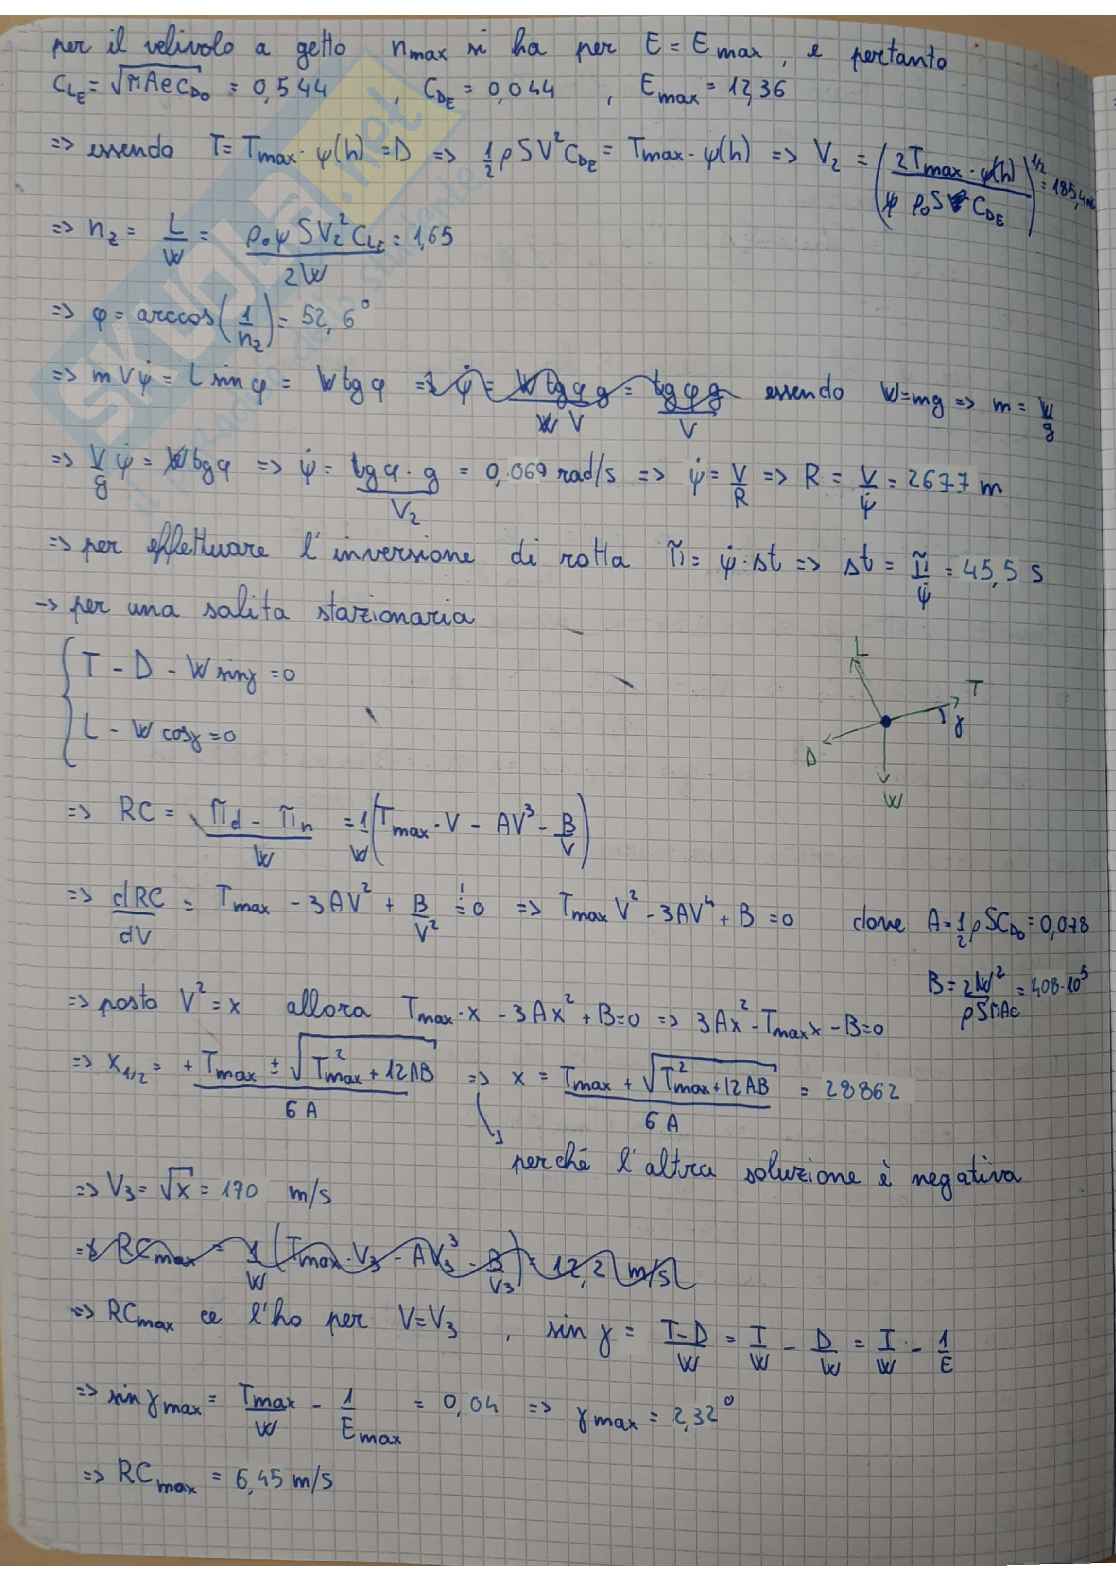 per il velivolo a getto n_max si ha per E = E_max, e pertanto
C_LE = √(πAeC_D0) = 0,544 , C_DE = 0,044 , E_max = 12,36
=> essendo T = T_max · φ(h) = D => 1/2 ρSV² C_DE = T_max · φ(h) => V_2 = (2T_max · φ(h) / ψ ρ_0 S C_DE)^1/2 = 185,4 m
=> n_2 = L/W = ρ_0 ψ S V_2² C_LE / 2W = 1,65
=> φ = arccos(1/n_2) = 52,6°
=> m V ψ̇ = L sin φ = W tg φ => ψ̇ = W tg φ g / W V = tg φ g / V essendo W = mg => m = W/g
=> V/g ψ̇ = W tg φ => ψ̇ = tg φ · g / V_2 = 0,069 rad/s => ψ̇ = V/R => R = V/ψ̇ = 2677 m
=> per effettuare l'inversione di rotta π = ψ̇ · Δt => Δt = π/ψ̇ = 45,5 s
-> per una salita stazionaria
T - D - W sin γ = 0
L - W cos γ = 0
L
T
γ
D
W
=> RC = Π_d - Π_n / W = 1/W (T_max · V - AV³ - B/V)
=> dRC/dV = T_max - 3AV² + B/V² = 0 => T_max V² - 3AV⁴ + B = 0 dove A = 1/2 ρSC_D0 = 0,078
B = 2W² / ρSπAe = 408·10⁵
=> posto V² = x allora T_max · x - 3Ax² + B = 0 => 3Ax² - T_max x - B = 0
=> x_1/2 = + T_max ± √(T²_max + 12AB) / 6A => x = T_max + √(T²_max + 12AB) / 6A = 28862
perché l'altra soluzione è negativa
=> V_3 = √x = 170 m/s
=> RC_max = 1/W (T_max · V_3 - AV_3³ - B/V_3) = 12,2 m/s
=> RC_max ce l'ho per V = V_3 , sin γ = T-D/W = T/W - D/W = T/W - 1/E
=> sin γ_max = T_max/W - 1/E_max = 0,04 => γ_max = 2,32°
=> RC_max = 6,45 m/s